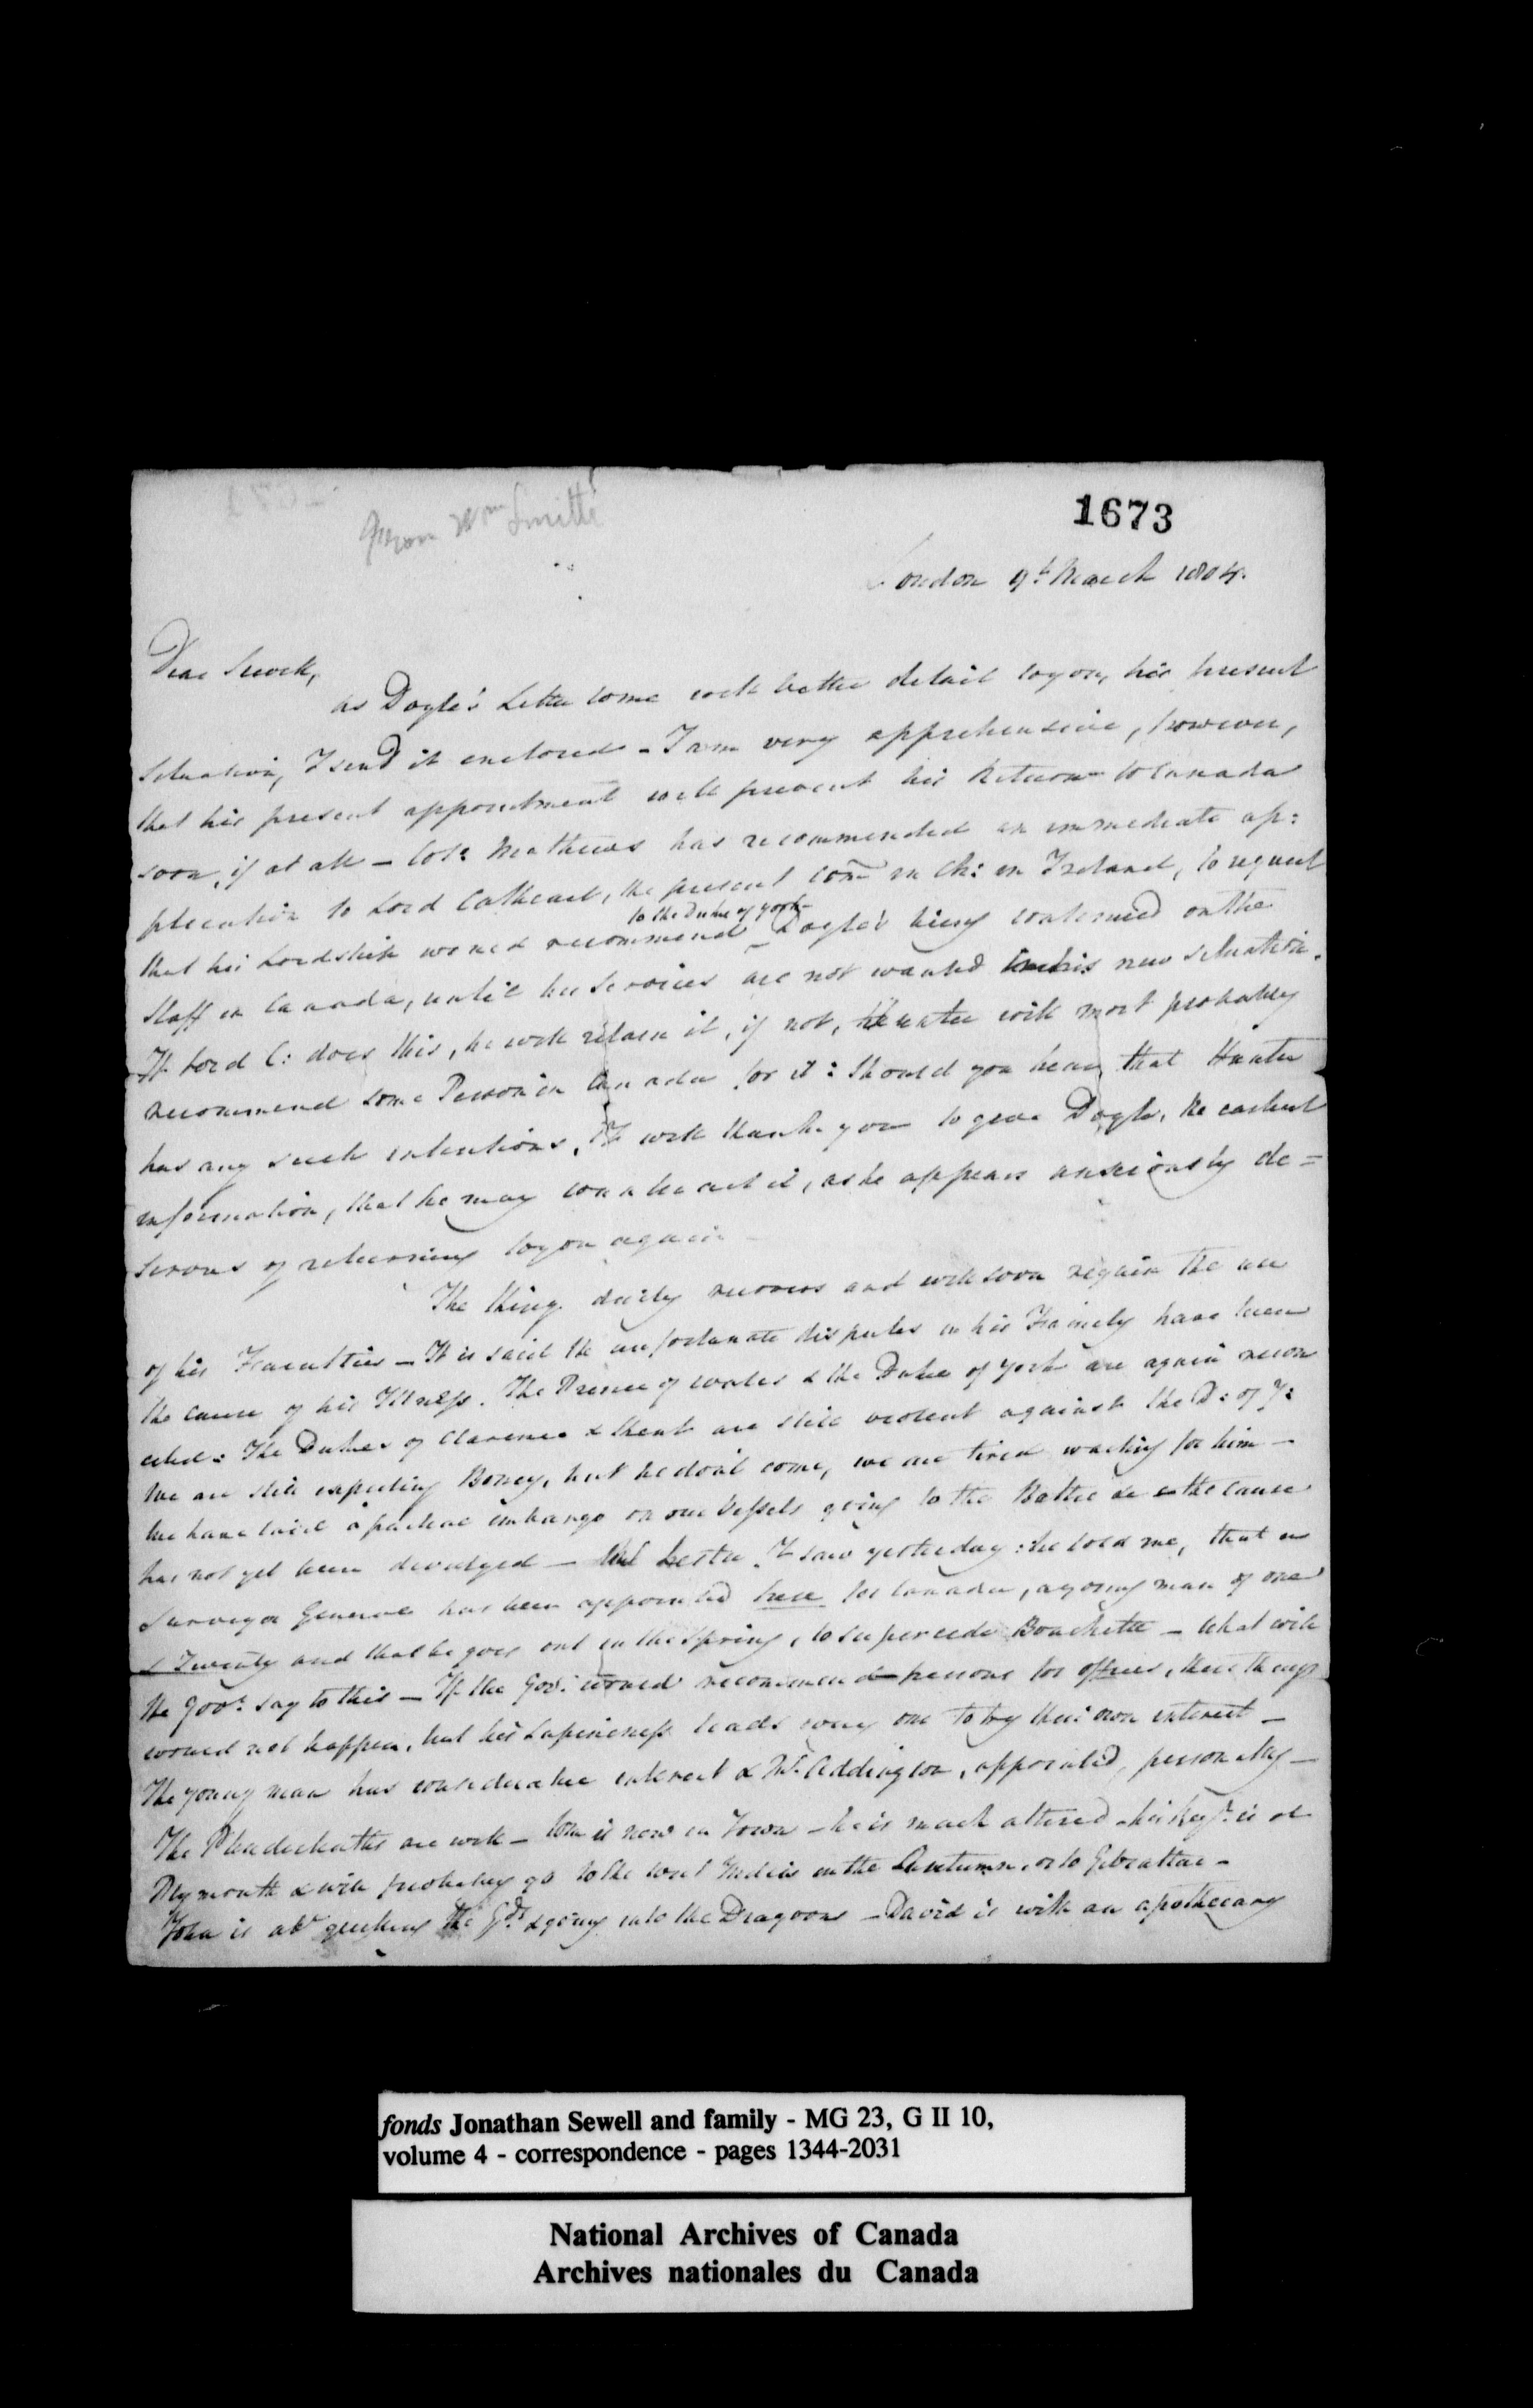 From Wm Smith
1673
London 9th March 1804.
Dear Sewell,
as Doyle's Letter to me will better detail to you, his present
Situation, I send it enclosed - I am very apprehensive, however,
that his present appointment will prevent his Return to Canada
soon, if at all - Colo: Mathews has recommended an immediate ap:
plication to Lord Cathcart, the present Com in Ch: in Ireland, to request
to the Duke of York
that his Lordship would recommend Doyle's being continued on the
Staff in Canada, until his Services are not wanted in his new situation.
If Lord C: does this, he will retain it, if not, Hunter will most probably
recommend some Person in Canada for it: Should you hear that Hunter
has any such intentions, I will thank you to give Doyle, the earliest
information, that he may counteract it, as he appears anxiously de=
sirous of returning to you again -
The King daily recovers and will soon regain the use
of his Faculties - It is said the unfortunate disputes in his Family have been
the cause of his Illness. The Prince of Wales & the Duke of York are again recon
ciled: The Dukes of Clarence & Kent are still violent against the D: of Y:
We are still expecting Boney, but he don't come, we are tired waiting for him -
We have laid a partial embargo on our Vessels going to the Baltic &c the cause
has not yet been divulged - I saw yesterday: he told me, that a
Surveyor General has been appointed here for Canada, a young man of one
& Twenty and that he goes out in the Spring, to supercede Bouchette - What will
the Govr. say to this - If the Govr. would recommend persons for offices, these things
would not happen, but his Supineness leads every one to try their own interest -
The young man has considerable interest & Mr. Addington, appointed personally -
The are well - Tom is now in Town - he is much altered - his Regt. is at
Plymouth & will probably go to the West Indies in the Autumn, or to Gibraltar -
John is abt. quitting the Gds & going into the Dragoons - David is with an apothecary
fonds Jonathan Sewell and family - MG 23, G II 10,
volume 4 - correspondence - pages 1344-2031
National Archives of Canada
Archives nationales du Canada